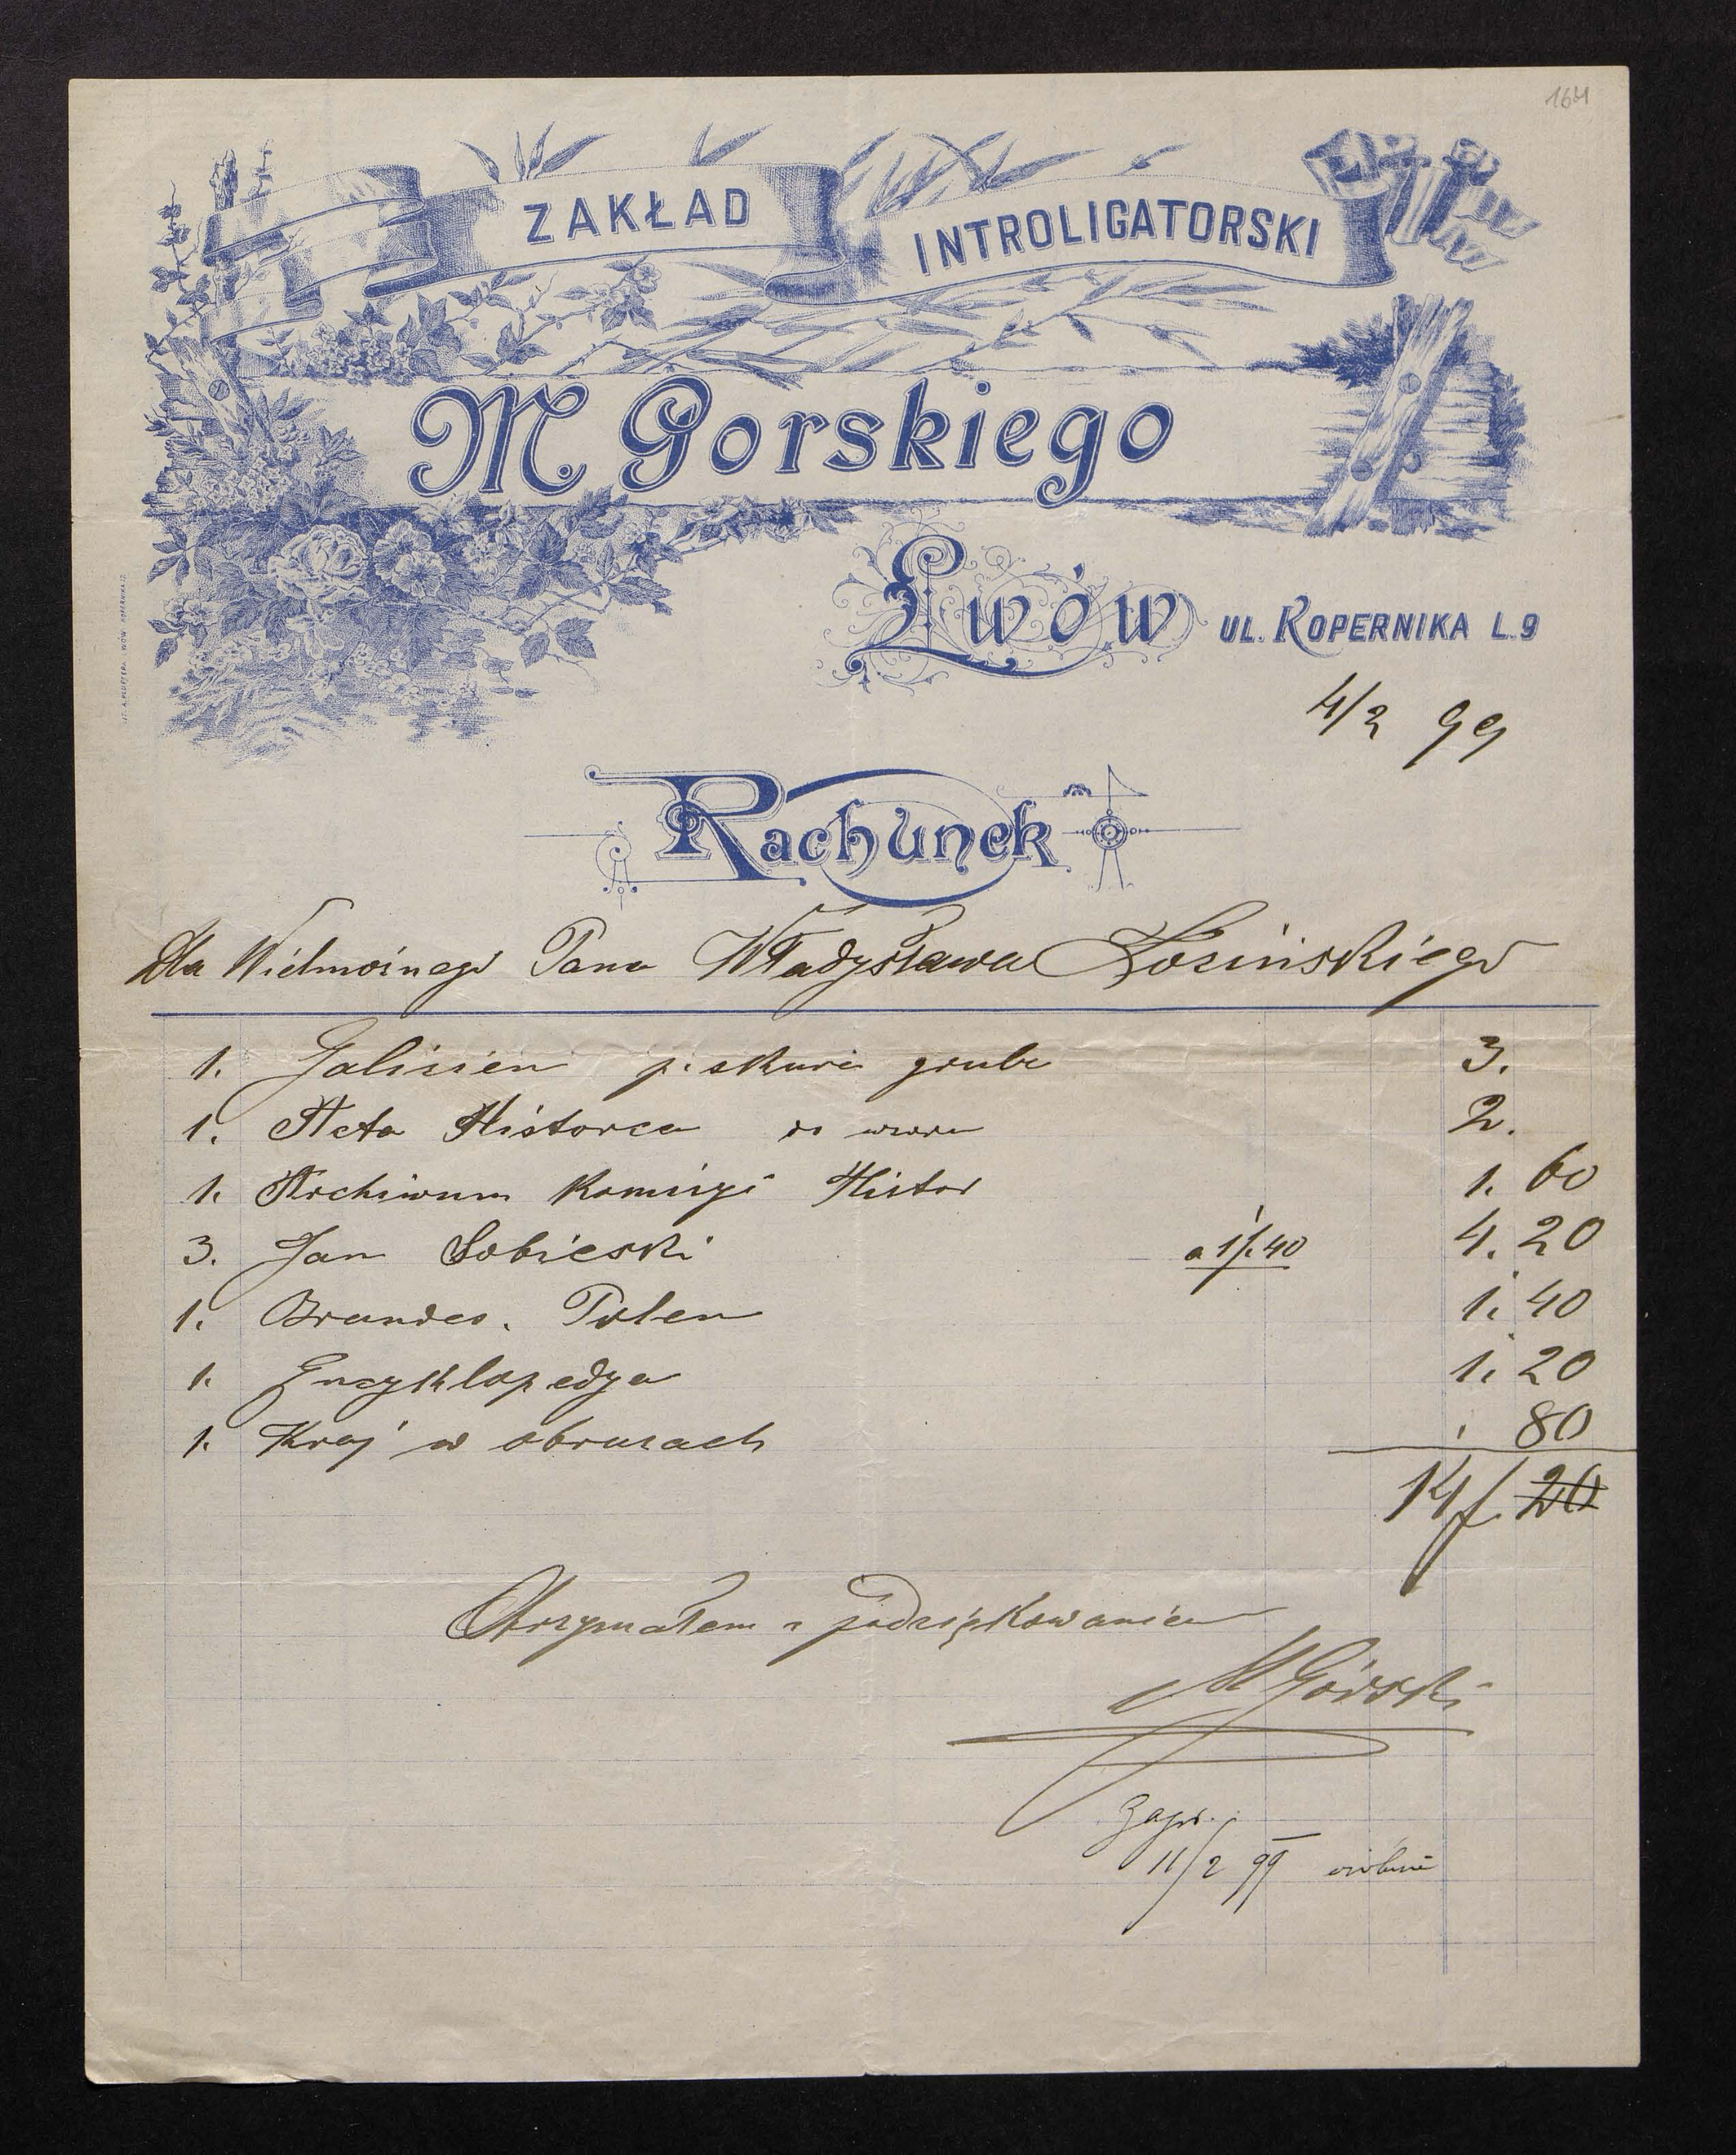 164
ZAKŁAD INTROLIGATORSKI
M Gorskiego
Lwów UL. KOPERNIKA L. 9
4/2 99
Rachunek
Dla Wielmożnego Pana Władysława Łozińskiego
1. Galizien p. skura grube 3.
1. Acta Historca do wzoru 2.
1. Archiwum Komisyi Histor 1. 60
3. Jan Sobieski a 1f. 40 4. 20
1. Brandes. Polen 1. 40
1. Encyklopedya 1. 20
1. Kraj w obrazach 80
14 f. 20
Otrzymałem z podziękowaniem
M Górski
Zapł.
11/2 99
LIT. A. PRUSZYŃSKI LWÓW KOPERNIKA